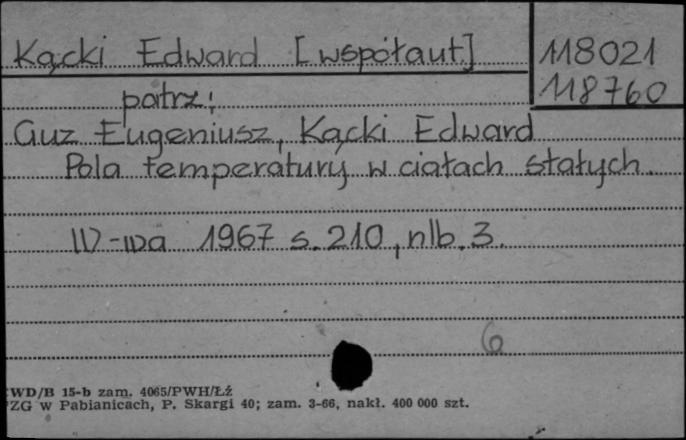 Kącki Edward [współaut] 118021
118760
patrz:
Guz Eugeniusz, Kącki Edward
Pola temperatury w ciałach stałych.
W-wa 1967 s. 210, nlb. 3.
6
WD/B 15-b zam. 4065/PWH/Łź
ZG w Pabianicach, P. Skargi 40; zam. 3-66, nakł. 400 000 szt.